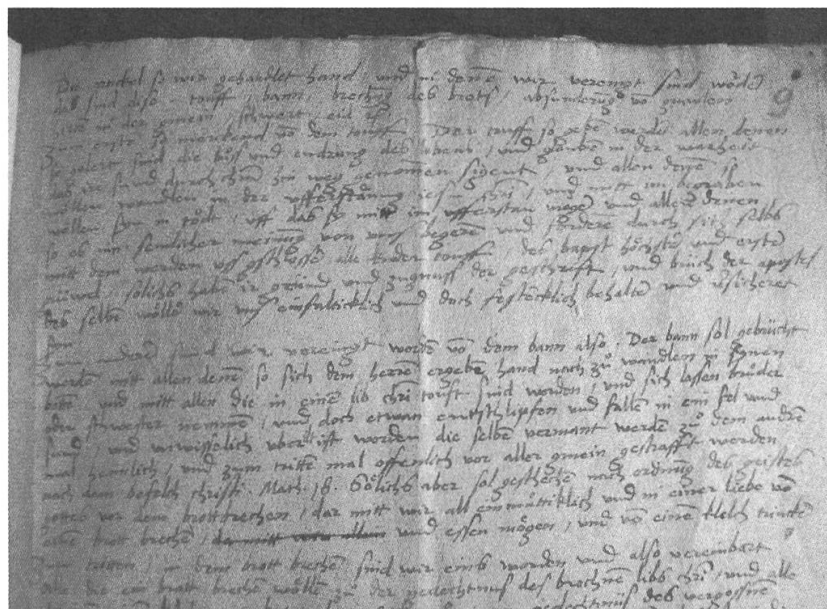 Die artickel so wir gehandlet hand, und in denē wir vereingt sind wordē
das sind dise. touff, bann, brechūg des brots, absünderūg vō
hirtē in der gmein, schwert, eid
Zum ersté so merckend vō dem touff. Der touff so gebē werdē allen denen
so gelert sind die bůss und endrung des lebens, und glauben in der warheit
das ire sünd durch christū hin weg genommen sigent, und allen denē so
wöllen wandlen in der ufferstäung iesu christi, und mitt im begraben
wöllen sin in tod, uff das sy mitt im ufferstan mögē und allen denen
so ob in semlicher meinūg von uns begerē und forderē durch sich selbs
mitt dem werden uss gschlossē alle kinder touff des bapst höchste und erste
grüwel. sölichs habēt ir grūnd und zügnuss der geschrifft, und brüch der apostel
des selbē wöllē wir uns einfalticklich und doch festēcklich behaltē und versicheret
sin
anderē sind wir vereingt wordē vō dem bann also. Der bann sol gebrücht
werdē mitt allen denē so sich dem herrē ergebē hand nach zů wandlen in synen
bottē und mitt allen die in einē lib christi touft sind worden, und sich lassen brůder
oder schwester nemmen, und doch etwan entschlipfen und fallen in ein fel und
sund, und unwisselich uberilt worden die selben vermant werdē zů dem andrē
mal heimlich, und zum trittē mal offenlich vor aller gmein gestrafft werden
nach dem befelch christi. Math. 18. Sölichs aber sol geschechē nach ordnūg des geistes
gottes vor dem brottbrechen, dar mitt wir all einmůticklich und in einer liebe vō
einē brott brechē, und essen mögen, und vō einē kelch trincken
Zum tritten, in dem brott brechē sind wir eins worden und also vereinbart
alle die ein brott brechē wöllē zů der gedechtnus des brochnē libs christi, und alle
gedechtnus des vergossnē